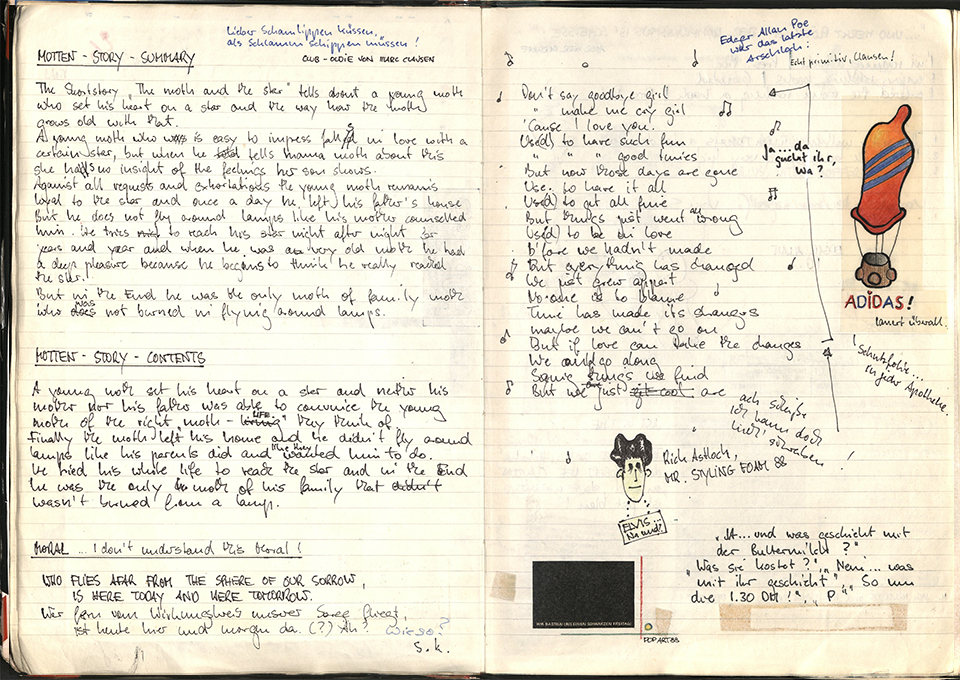 Lieber Schamlippen küssen,
als Schlamm schippen müssen!
CLUB-OLDIE VON MARC CLAUSEN
MOTTEN - STORY - SUMMARY
The Shortstory "The moth and the star" tells about a young moth
who set his heart on a star and the way how the moth
grows old with that.
A young moth who was is easy to impress falls in love with a
certain star, but when he told tells mama moth about this
she has no insight of the feelings her son shows.
Against all requests and exhortations the young moth remains
loyal to the star and once a day he left his father's house
But he does not fly around lamps like his mother counselled
him. He tries to reach his star night after night for
years and years and when he was a very old moth he had
a deep pleasure because he begins to think he really reached
the star.
But in the End he was the only moth of family moth
who was does not burned in flying around lamps.
MOTTEN - STORY - CONTENTS
A young moth set his heart on a star and neither his
mother nor his father was able to convince the young
moth of the right "moth - living LIFE" they think of
Finally the moth left his home and he didn't fly around
lamps like his parents did and like they wanted him to do.
He tried his whole life to reach the star and in the End
he was the only moth of his family that didn't
wasn't burned from a lamp.
MORAL ... I don't understand this Moral!
WHO FLIES AFAR FROM THE SPHERE OF OUR SORROW,
IS HERE TODAY AND HERE TOMORROW.
Wer fern vom Wirkungskreis unserer Sorge fliegt,
ist heute hier und morgen da. (?) Äh? Wieso?
S.K.
Edgar Allan Poe
war das letzte
Arschloch!
Echt primitiv, Clausen!
Don't say goodbye girl
" make me cry girl
'Cause I love you.
Used to have such fun
" " " good times
But now those days are gone
Use to have it all
Used to get all fine
But things just went all wrong
Used to be in love
B'fore we hadn't made
But everything has changed
We just grew appart
No-one is to blame
Time has made its changes
maybe we can't go on
But if love can take the changes
We could go along
Some things we find
But we are just are
Ja....da
guckt ihr,
wa?
ADIDAS!
lauert überall.
! Schutzfolie...
in jeder Apotheke
ach scheiße
ich kann doch
nicht schreiben!
Rick Astloch,
MR. STYLING FOAM 88
ELVIS
Na und?
"Ätt...und was geschieht mit
der Buttermilch?"
"Was sie kostet?", "Nein...was
mit ihr geschieht" "So um
die 1.30 DM!", "P"
WIR BASTELN UNS EINEN SCHWARZEN FREITAG
POP ART 88